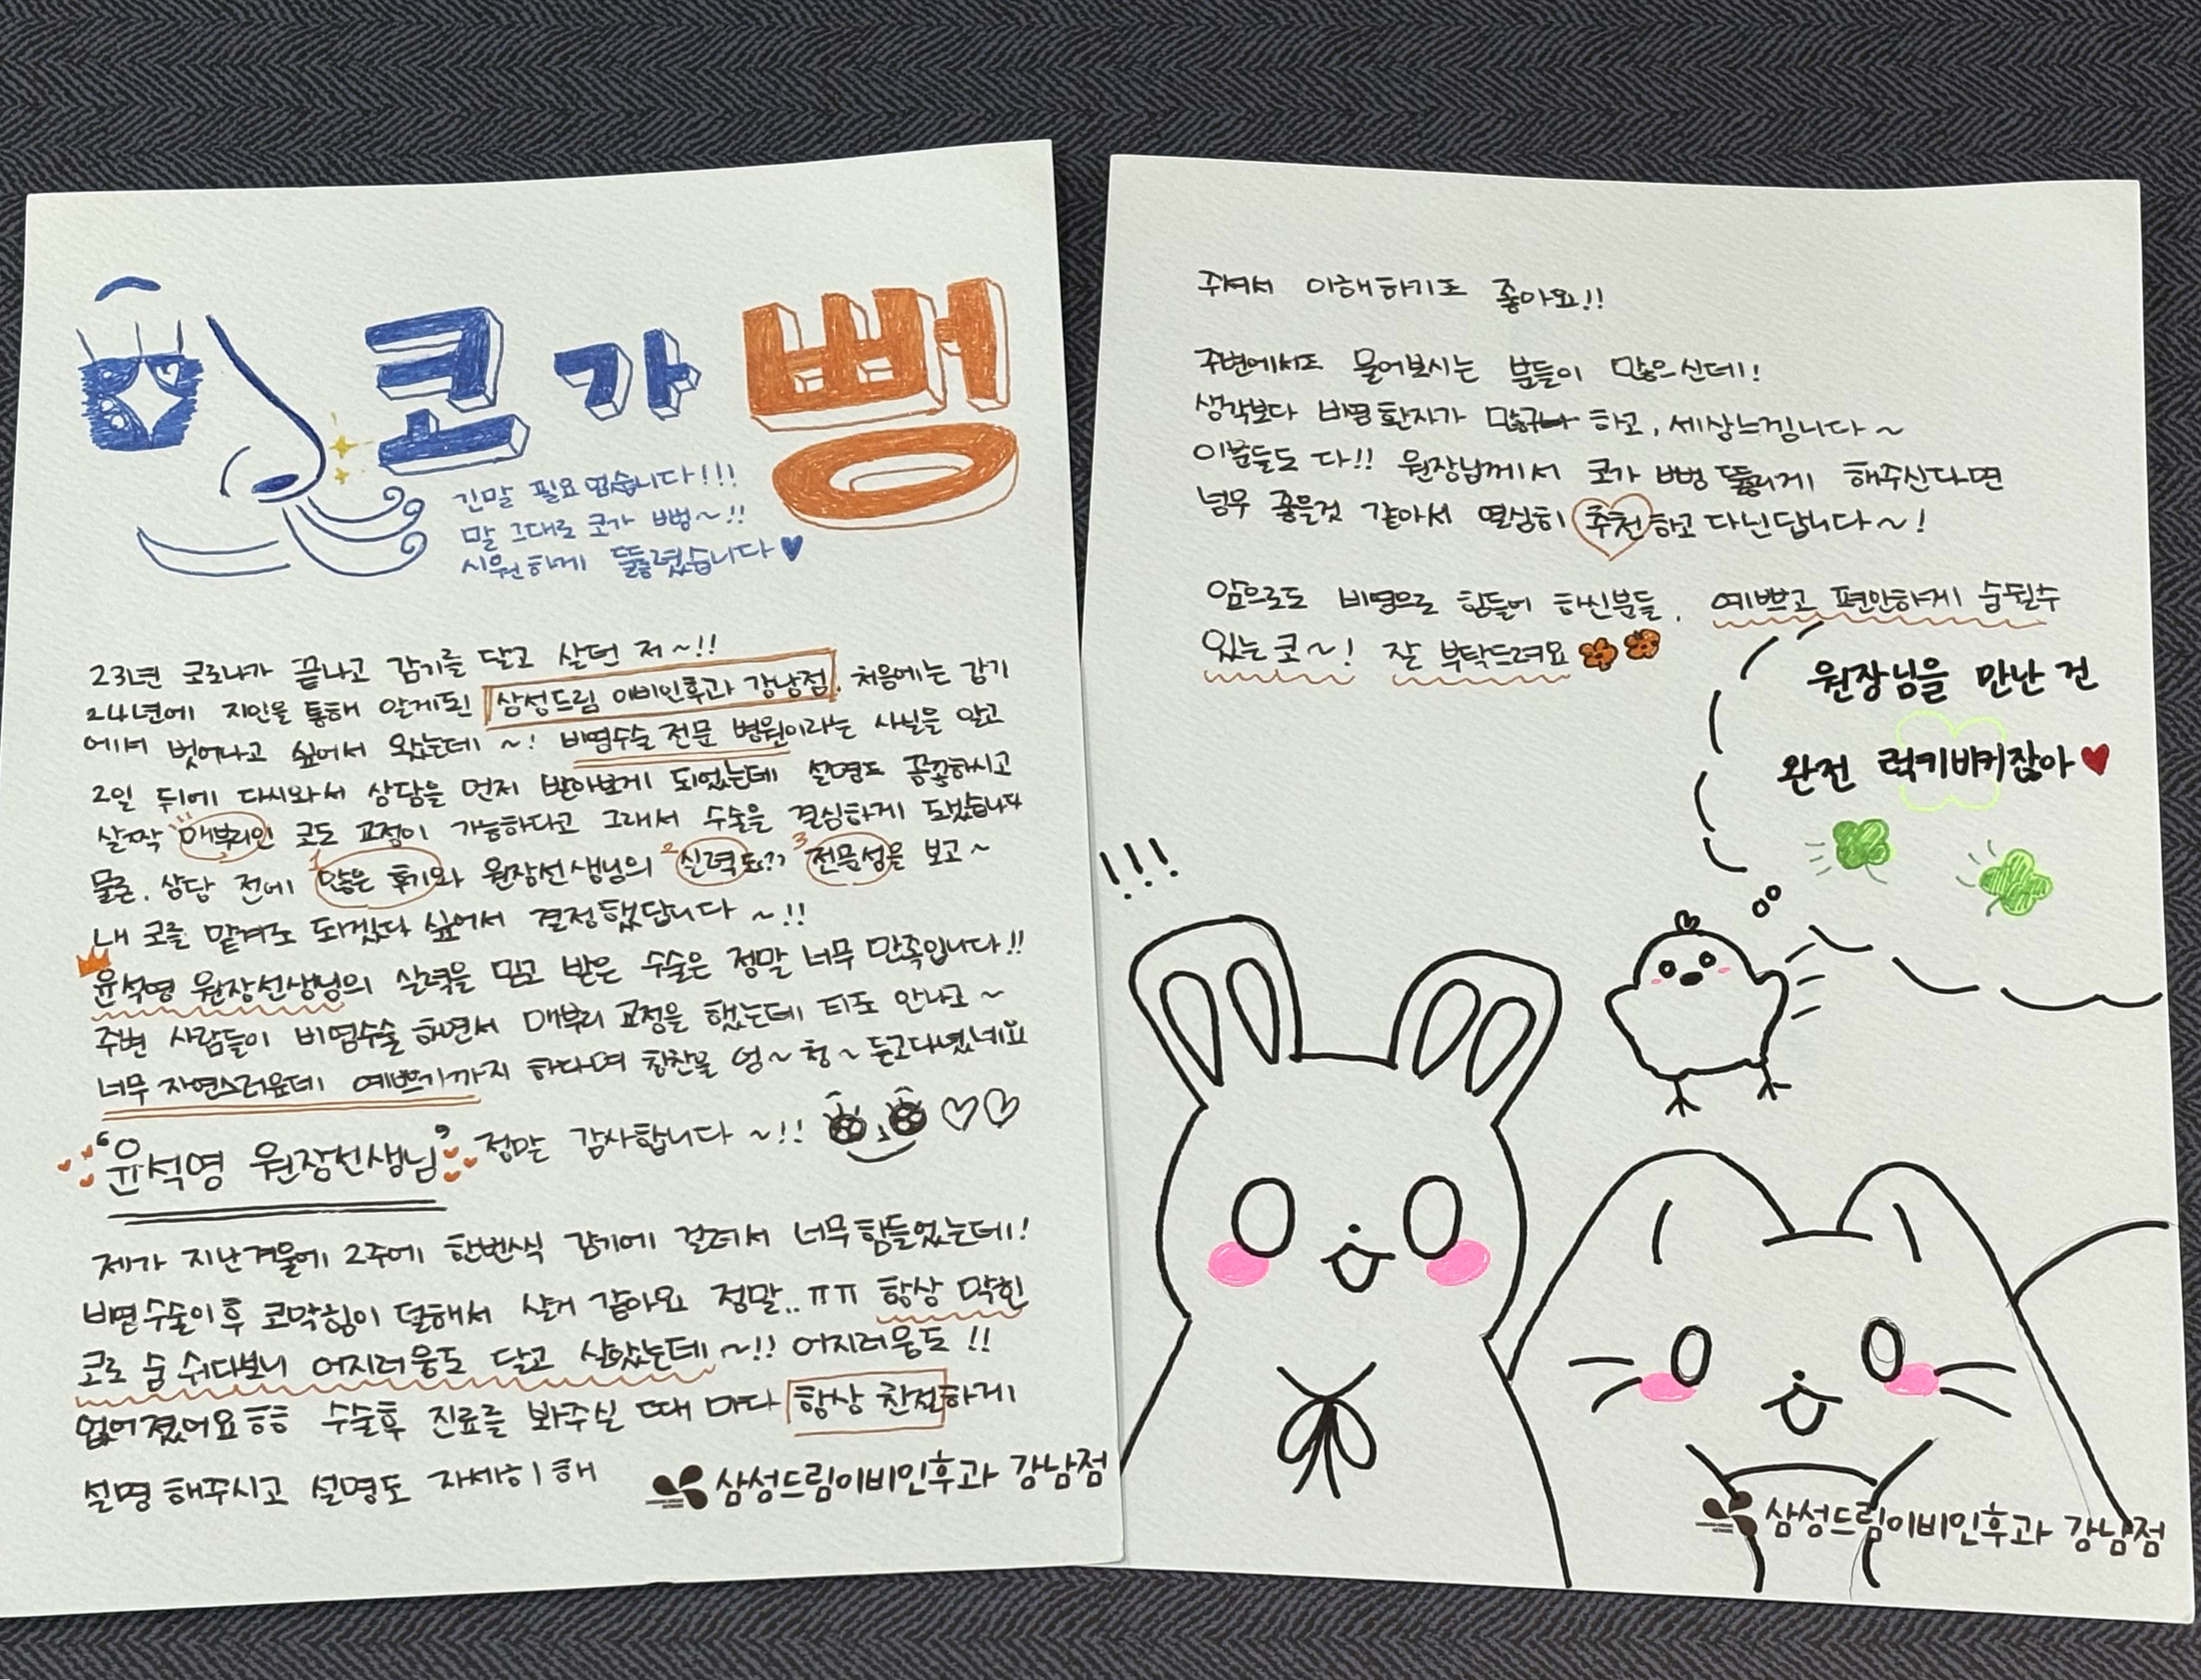 코가 뻥
긴말 필요 없습니다!!!
말 그대로 코가 뻥~!!
시원하게 뚫렸습니다♥
23년 코로나가 끝나고 감기를 달고 살던 저~!!
24년에 지인을 통해 알게된 삼성드림 이비인후과 강남점. 처음에는 감기
에서 벗어나고 싶어서 왔는데~! 비염수술 전문 병원이라는 사실을 알고
2일 뒤에 다시와서 상담을 먼저 받아보게 되었는데 설명도 꼼꼼하시고
살짝 매부리인 코도 교정이 가능하다고 그래서 수술을 결심하게 됐습니다
물론, 상담 전에 1 많은 후기와 원장선생님의 2 실력도?? 3 전문성을 보고~
내 코를 맡겨도 되겠다 싶어서 결정했답니다~!!
윤석영 원장선생님의 실력을 믿고 받은 수술은 정말 너무 만족입니다!!
주변 사람들이 비염수술 하면서 매부리 교정을 했는데 티도 안나고~
너무 자연스러운데 예쁘기까지 하다며 칭찬을 엄~청~ 듣고다녔네요
“윤석영 원장선생님” 정말 감사합니다~!! ♡♡
제가 지난겨울에 2주에 한번씩 감기에 걸려서 너무 힘들었는데!
비염수술이후 코막힘이 덜해서 살거 같아요 정말..ㅠㅠ 항상 막힌
코로 숨 쉬다보니 어지러움도 달고 살았는데~!! 어지러움도!!
없어졌어요ㅎㅎ 수술후 진료를 봐주실 때 마다 항상 친절하게
설명해주시고 설명도 자세히 해
삼성드림이비인후과 강남점
주셔서 이해하기도 좋아요!!
주변에서도 물어보시는 분들이 많으신데!
생각보다 비염환자가 많구나 하고, 세상느낍니다~
이분들도 다!! 원장님께서 코가 뻥 뚫리게 해주신다면
넘무 좋을것 같아서 열심히 추천하고 다닌답니다~!
앞으로도 비염으로 힘들어 하신분들, 예쁘고 편안하게 숨쉴수
있는 코~! 잘 부탁드려요
원장님을 만난 건
완전 럭키비키잖아♥
!!!
삼성드림이비인후과 강남점